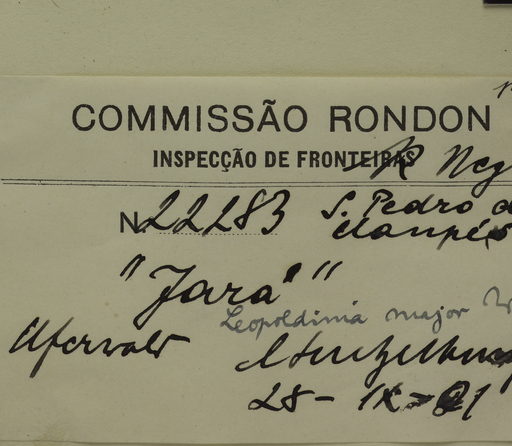 COMMISSÃO RONDON
INSPECÇÃO DE FRONTEIRAS
R Neg
N. 22283 S. Pedro d
"Jará"
Leopoldinia major W
Uferwald
28 - IX -